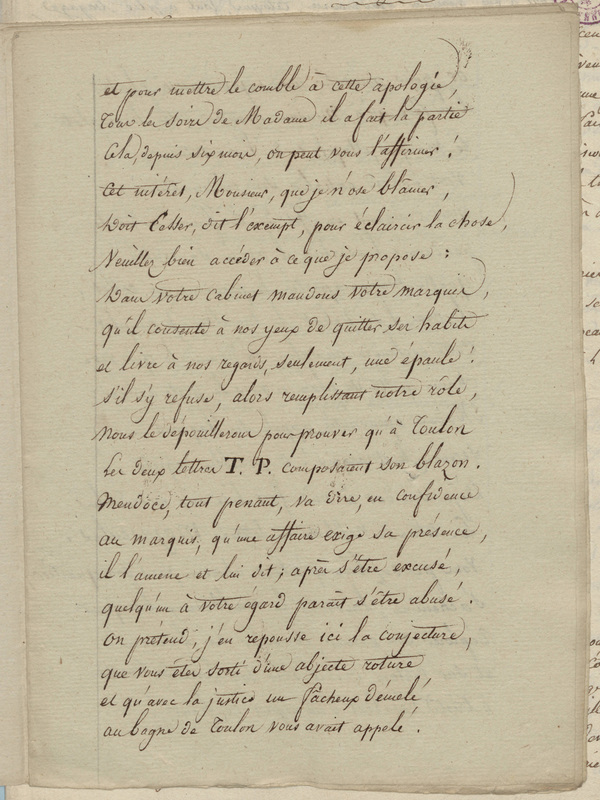 et pour mettre le comble à cette apologie,
Tous les soirs de Madame il a fait la partie
Cela, depuis six mois, on peut vous l'affirmer !
Cet intérêt, Monsieur, que je n'ose blâmer,
Doit Cesser, dit l'exempt, pour éclaircir la chose,
Veuillez bien accéder à ce que je propose :
Dans votre Cabinet mandons votre marquis,
qu'il consente à nos yeux de quitter ses habits
et livre à nos regards, seulement, une épaule !
s'il s'y refuse, alors remplissant notre rôle,
Nous le dépouillerons pour prouver qu'à Toulon
Les deux lettres T. P. composaient son blazon.
Mendoce, tout penaut, va dire, en confidence
au marquis, qu'une affaire exige sa présence,
il l'amene et lui dit ; après s'être excusé,
quelqu'un à votre égard paraît s'être abusé.
On prétend, j'en repousse ici la conjecture,
que vous êtes sorti d'une abjecte roture
et qu'avec la justice un fâcheux démelé
au bagne de Toulon vous avait appelé.